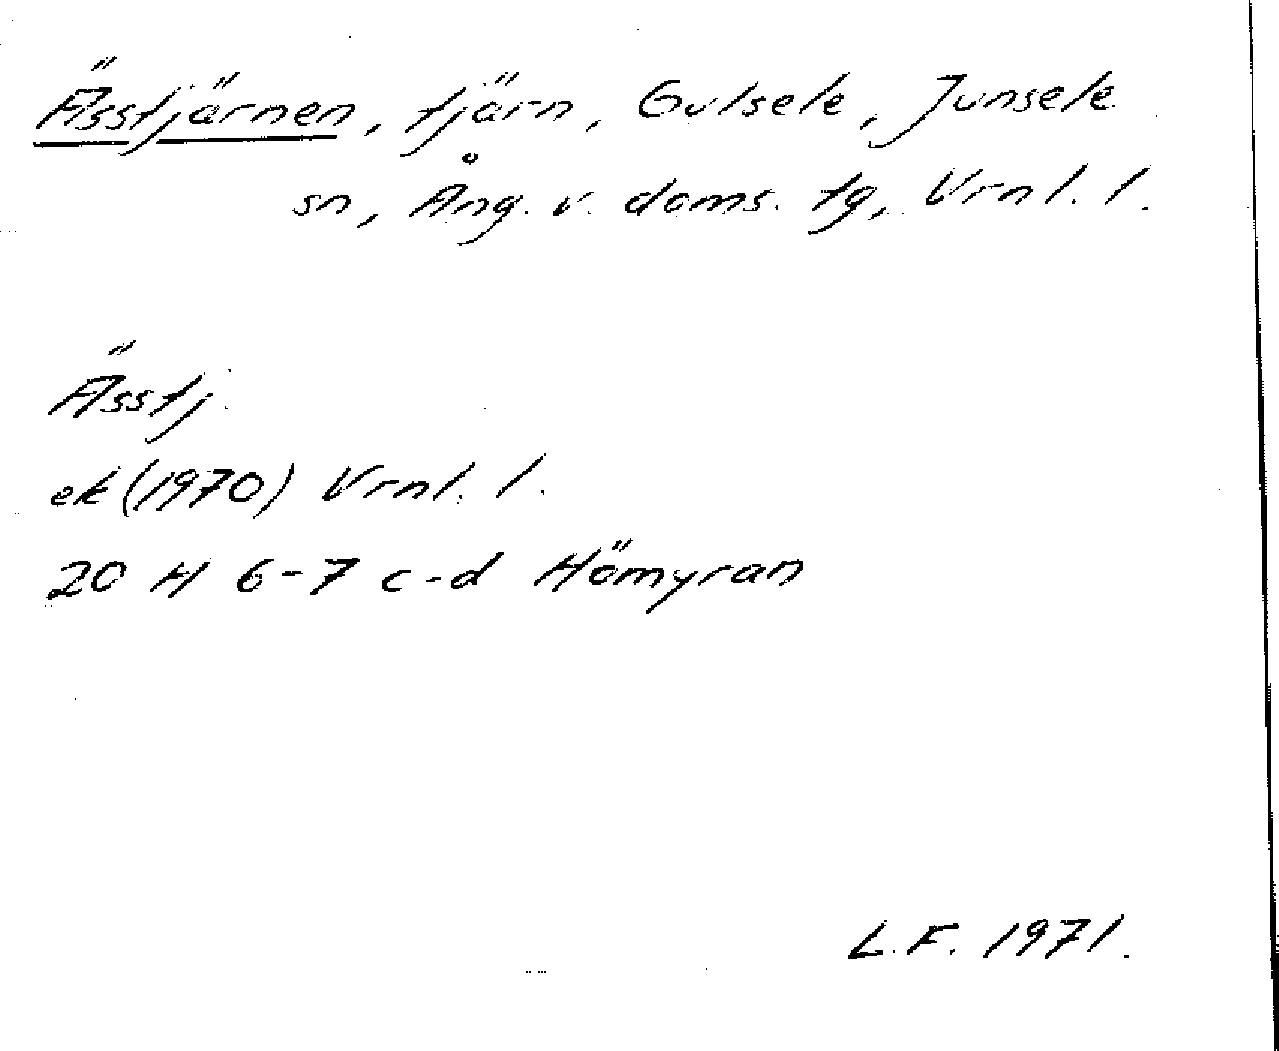 Ässtjärnen, tjärn, Gulsele, Junsele
sn, Ång. v. doms. tg, Vrnl. l.
Ässtj.
ek (1970) Vrnl. l.
20 H 6-7 c-d Hömyran
L.F. 1971.